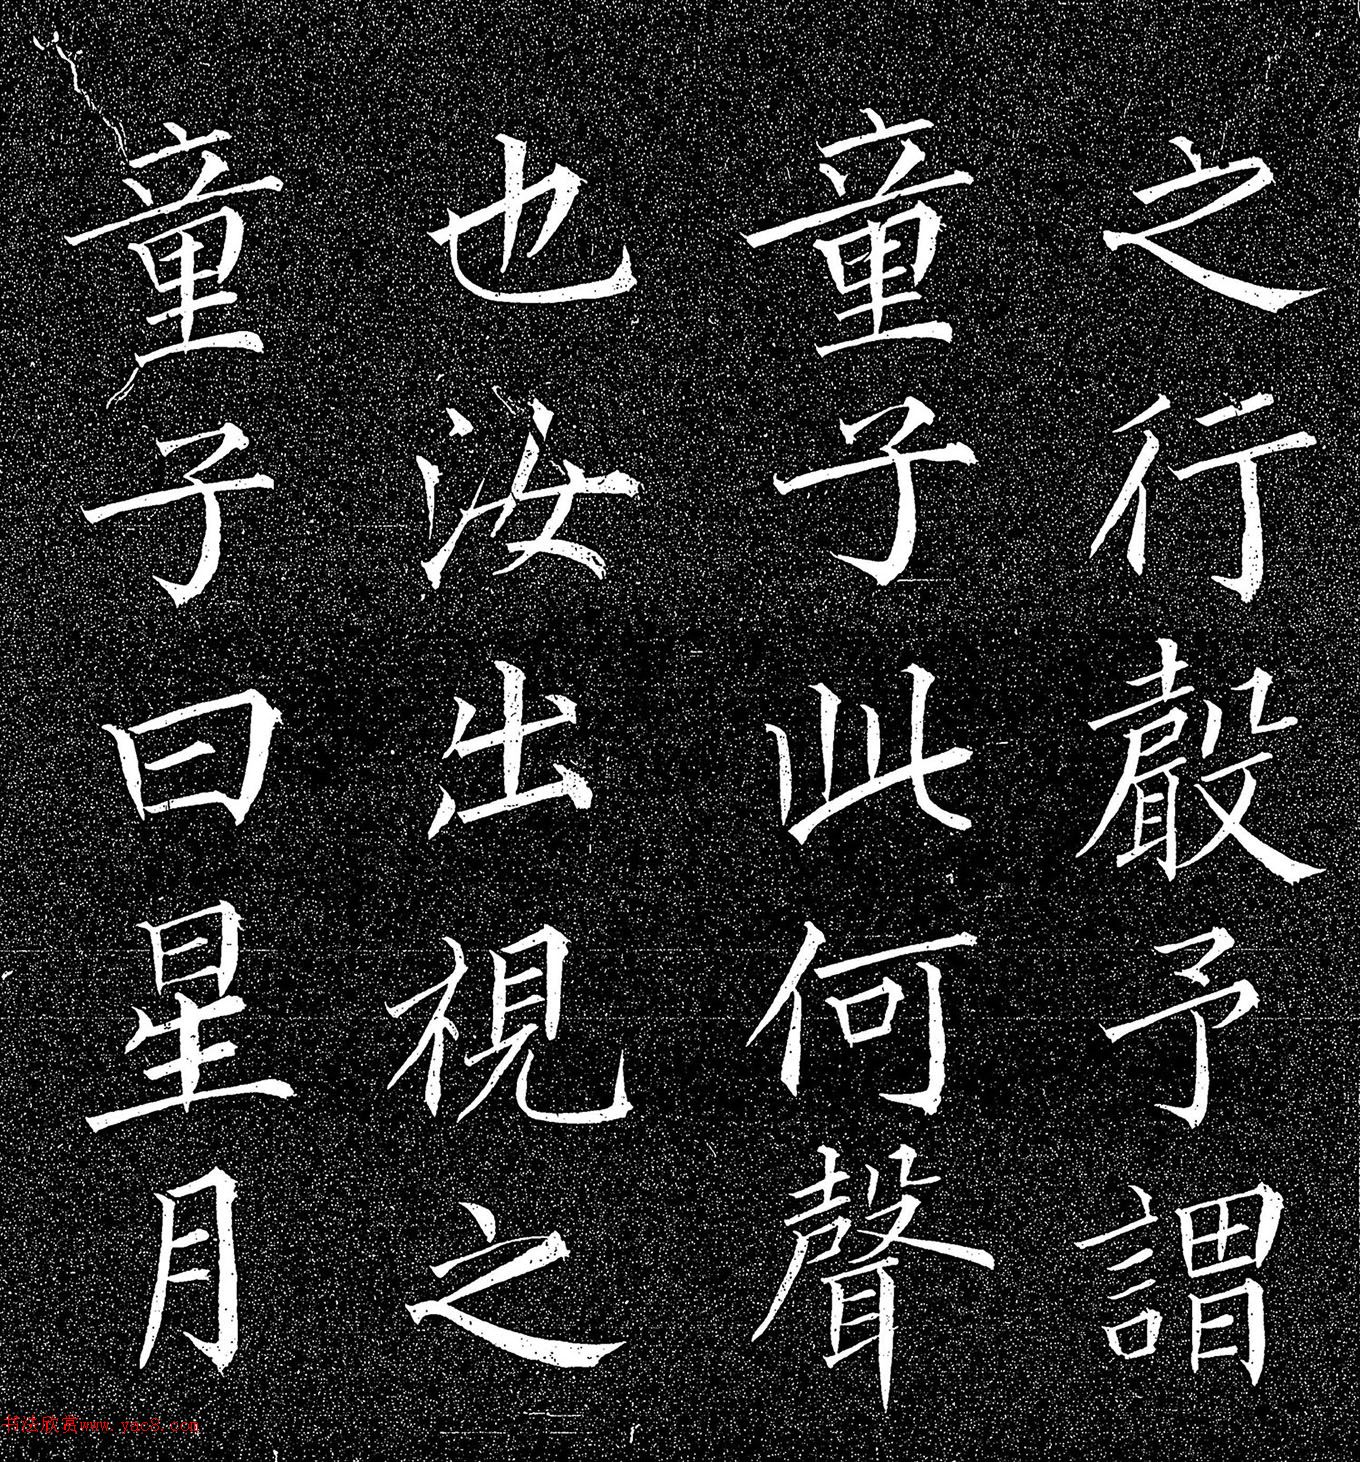 之行聲予謂
童子此何聲
也汝出視之
童子曰星月
书法欣赏www.yac8.com